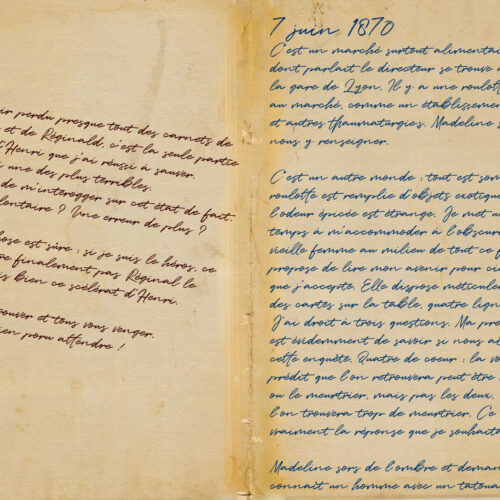 ir perdu presque tout des carnets de
et de Réginald, c'est la seule partie
d'Henri que j'ai réussi à sauver.
une des plus terribles.
de m'interoger sur cet état de fait.
lontaire ? Une erreur de plus ?
ose est sûre : si je suis le héros, ce
re finalement pas Réginal le
is bien ce scélérat d'Henri.
rouver et tous vous venger.
ien pour attendre !
7 juin 1870
C'est un marché surtout alimentai
dont parlait le directeur se trouve
la gare de Lyon. Il y a une roulott
au marché, comme un établissemen
et autres thaumaturgies. Madeline s
nous y renseigner.
C'est un autre monde : tout est som
roulotte est remplie d'objets exotiqu
l'odeur épicée est étrange. Je met u
temps à m'accommoder à l'obscur
vieille femme au milieu de tout ce f
propose de lire mon avenir pour ci
que j'accepte. Elle dispose méticule
des cartes sur la table, quatre lign
J'ai droit à trois questions. Ma pr
est évidemment de savoir si nous al
cette enquête. Quatre de coeur : la vo
prédit que l'on retrouvera peut être
ou le meurtrier, mais pas les deux.
l'on trouvera trop de meurtrier. Ce
vraiment la réponse que je souhaita
Madeline sors de l'ombre et deman
connait un homme avec un tatoua